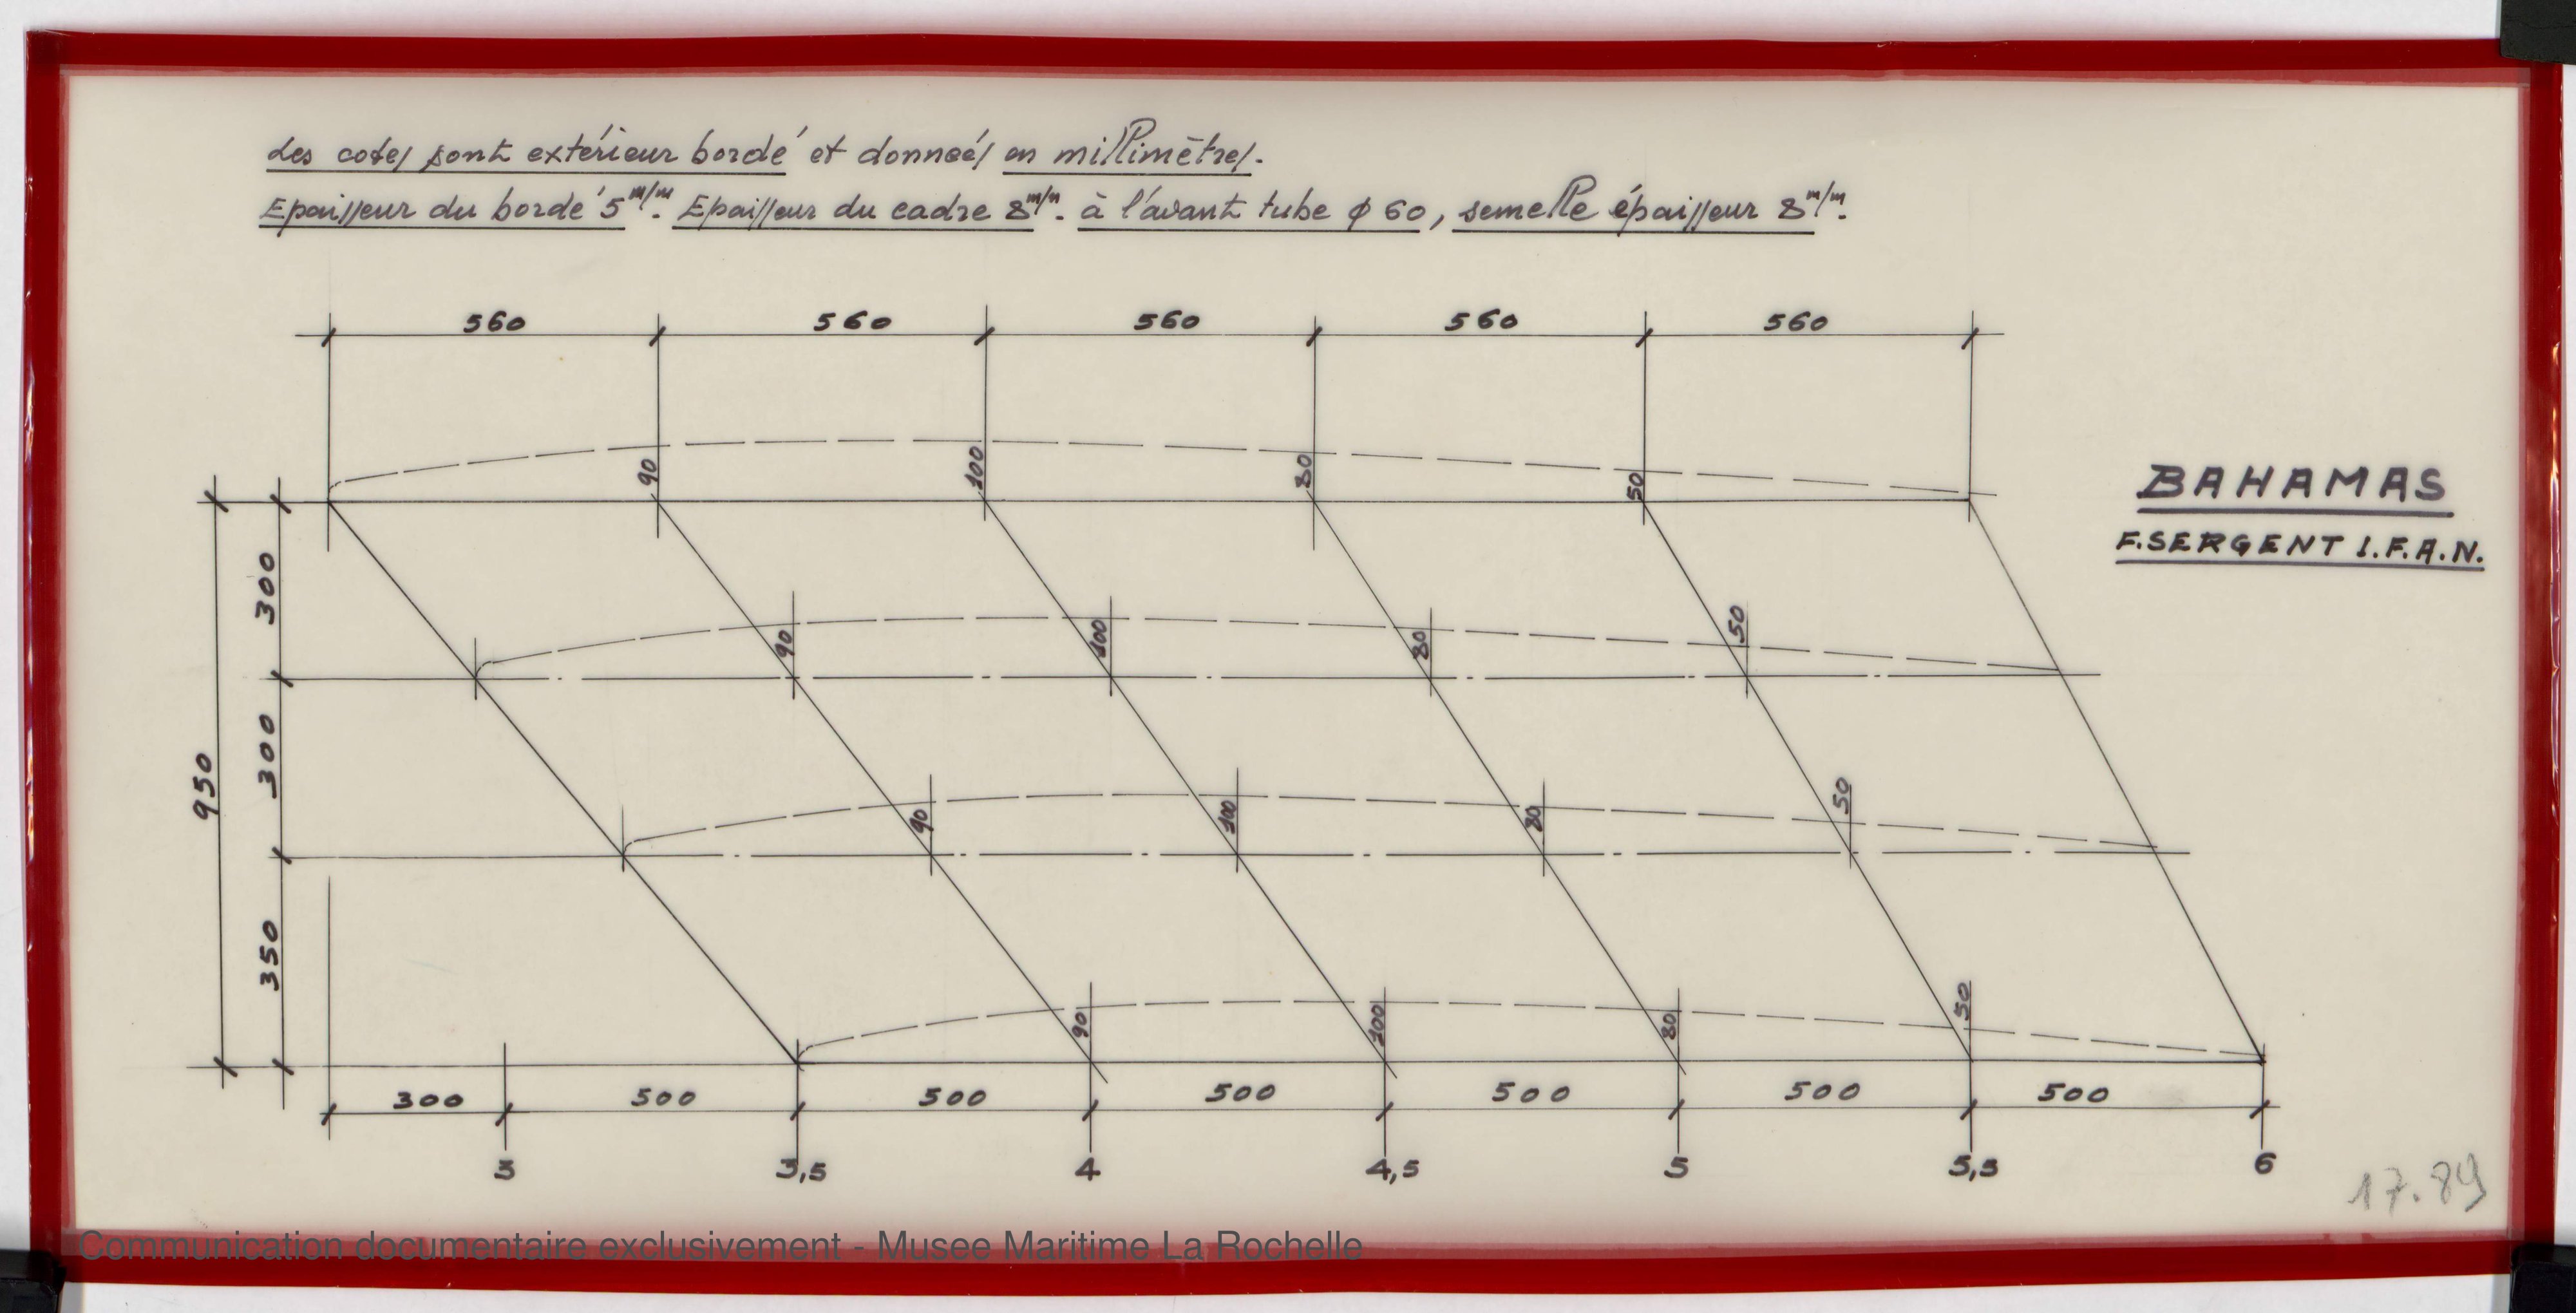 Les cotes sont extérieur bordé et données en millimètres.
Epaisseur du bordé 5 m/m. Epaisseur du cadre 8 m/m. à l'avant tube φ 60, semelle épaisseur 8 m/m.
560 560 560 560 560
90 100 80 50
BAHAMAS
F. SERGENT I.F.A.N.
300
90 100 80 50
300
950
90 100 80 50
350
90 100 80 50
300 500 500 500 500 500 500
3 3,5 4 4,5 5 5,5 6
17.89
Communication documentaire exclusivement - Musee Maritime La Rochelle